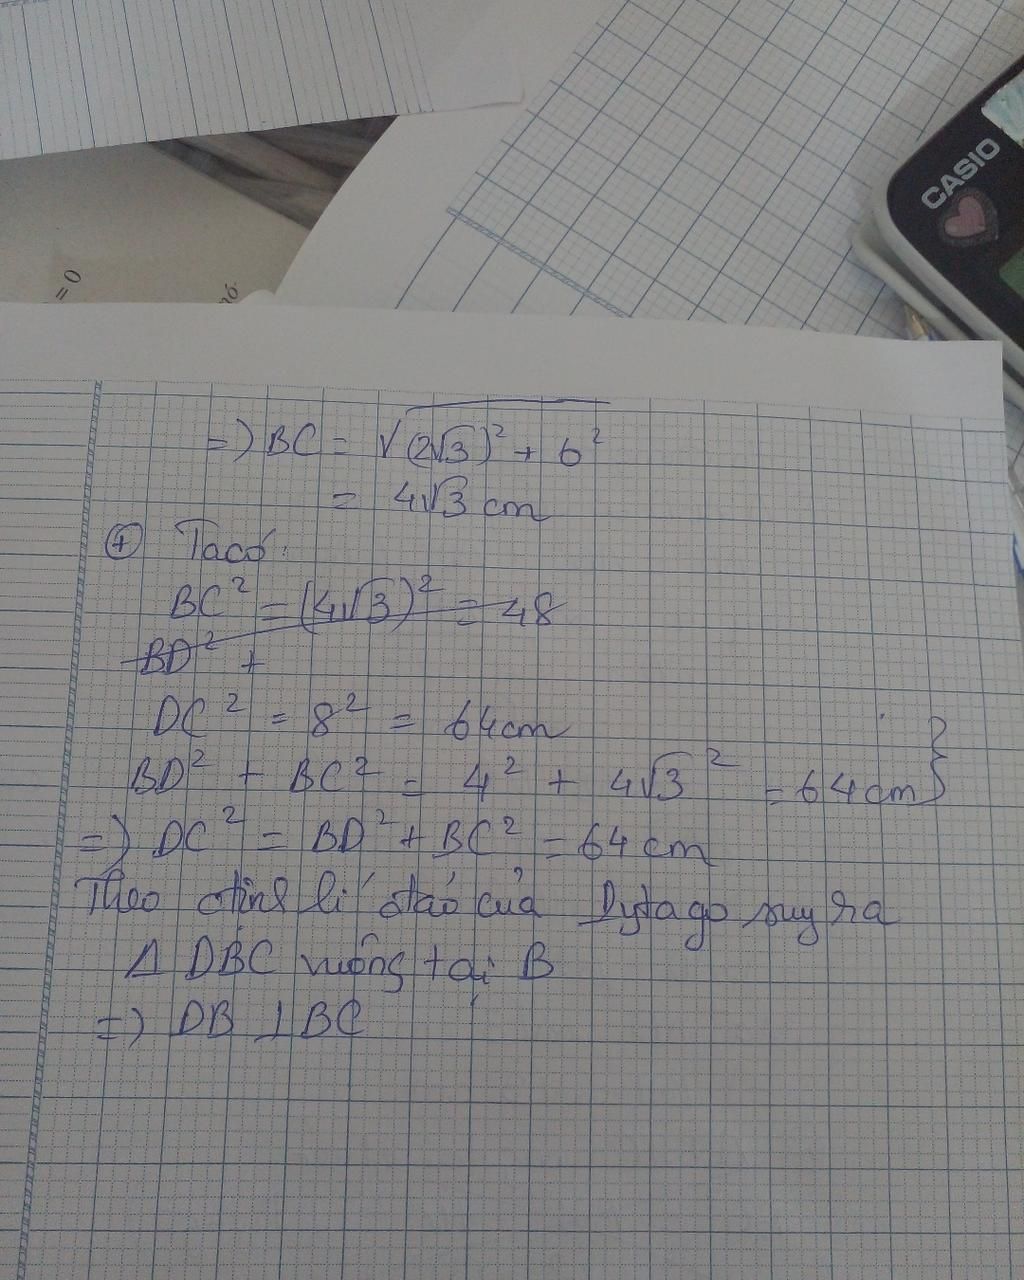 = 0
nó.
CASIO
=) BC = √(2√3)² + 6²
= 4√3 cm
+ Ta có:
BC² = (4√3)² = 48
BD² +
DC² = 8² = 64 cm
BD² + BC² = 4² + 4√3² = 64 cm }
=) DC² = BD² + BC² = 64 cm
Theo định lí đảo của Pytago suy ra
Δ DBC vuông tại B
=) DB ⊥ BC